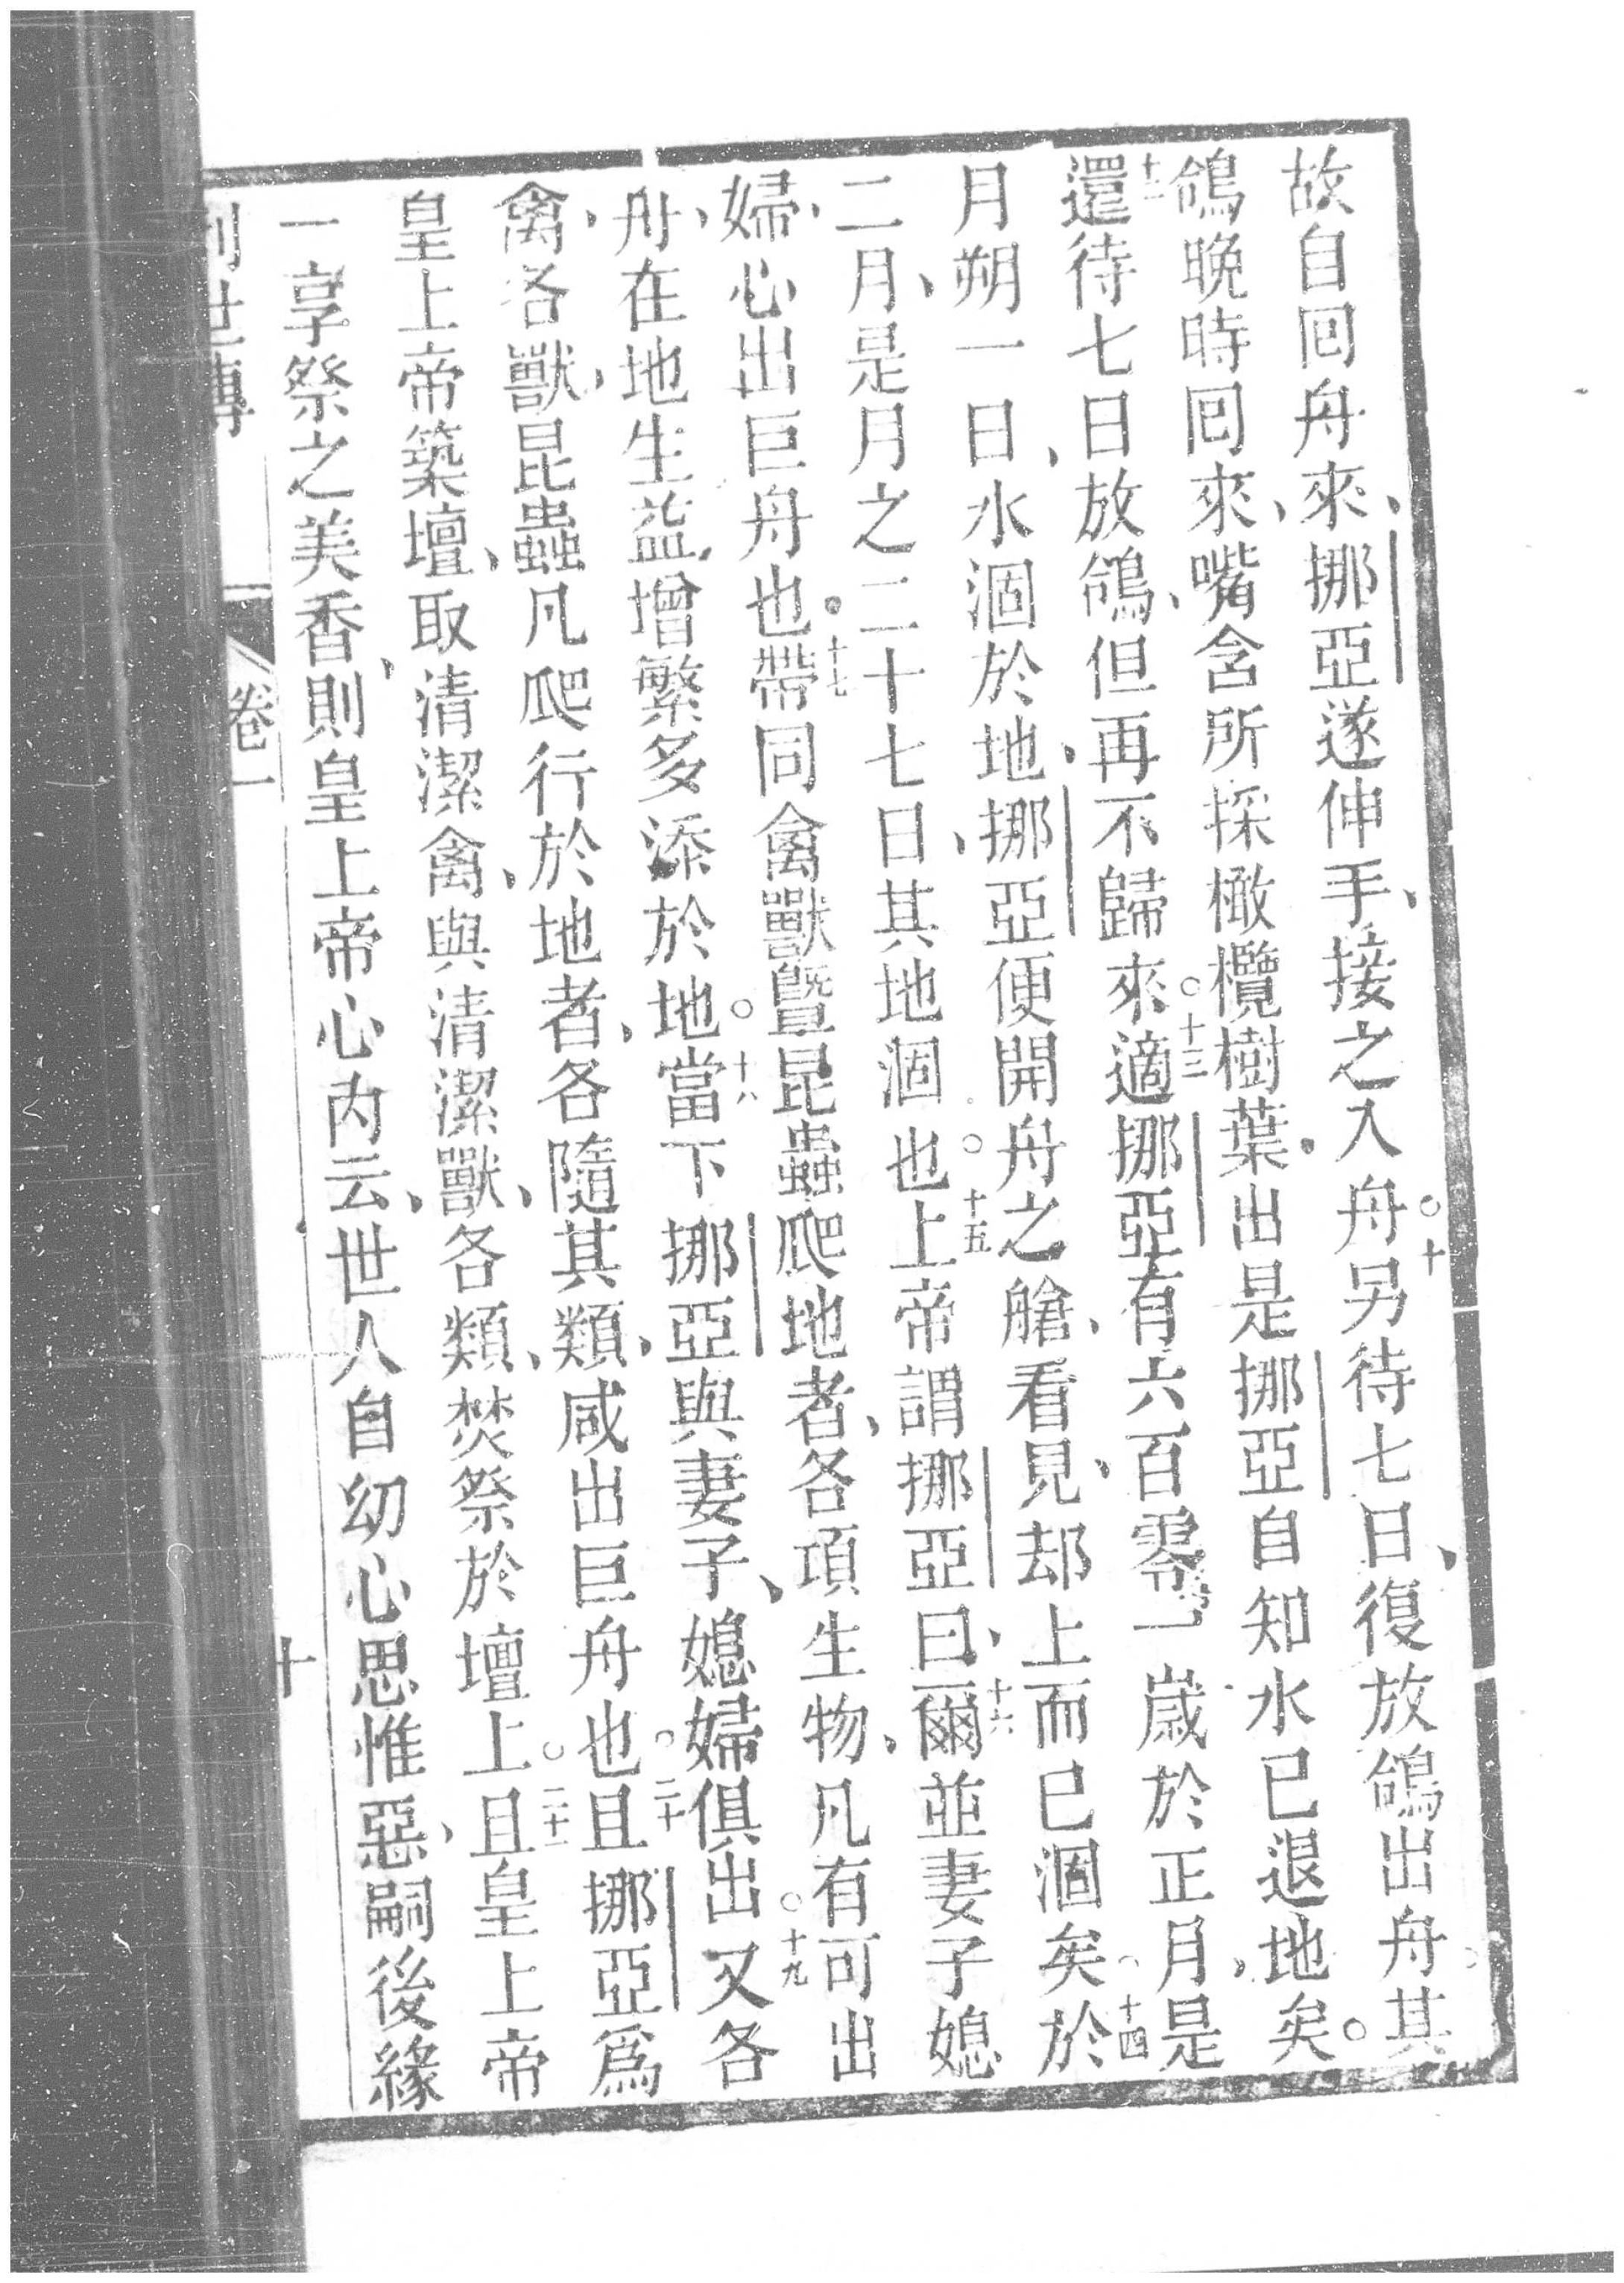 故自囘舟來、挪亞遂伸手、接之入舟○十另待七日、復放鴿出舟其
鴿晚時囘來、嘴含所採橄欖樹葉。出是挪亞自知水已退地矣。
十二還待七日放鴿、但再不歸來○十三適挪亞有六百零一歲於正月、是
月朔一日、水涸於地、挪亞便開舟之艙、看見、却上而已涸矣○十四於
二月、是月之二十七日、其地涸也○十五上帝謂挪亞曰、十六爾並妻子媳
婦、心出巨舟也。十七帶同禽獸曁昆蟲爬地者、各項生物、凡有可出
舟、在地生益、增繁多添於地○十八當下挪亞與妻子、媳婦俱出○十九又各
禽、各獸、昆蟲凡爬行於地者、各隨其類、咸出巨舟也○二十且挪亞爲
皇上帝築壇、取清潔禽、與清潔獸、各類、焚祭於壇上○二十一且皇上帝
一享祭之美香、則皇上帝心內云、世人自幼心思惟惡、嗣後緣
卷一
十